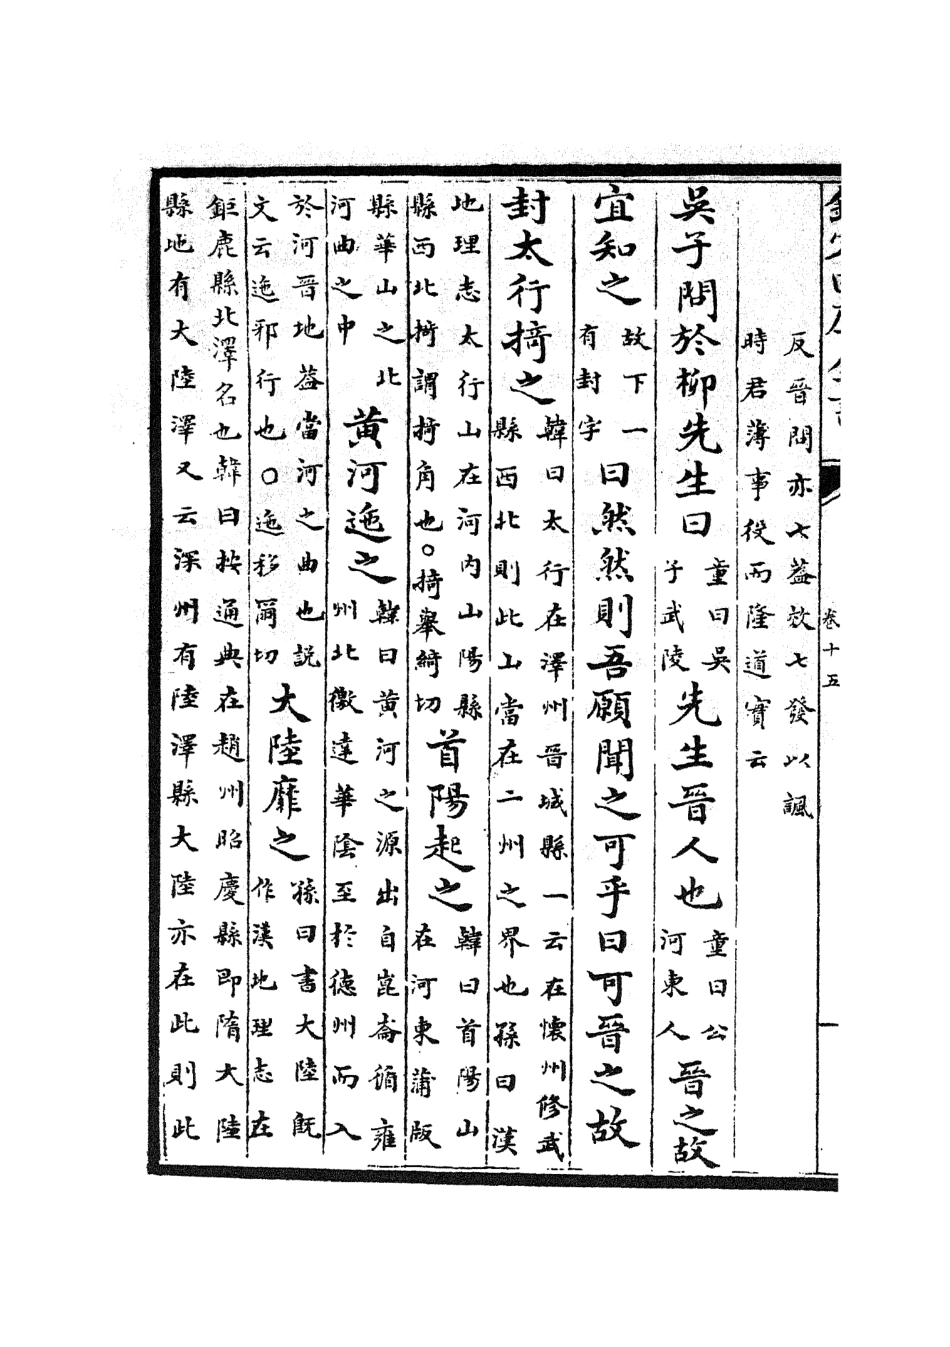 欽定四庫全書
卷十五
反晉問亦七蓋效七發以諷
時君薄事役而隆道實云
吳子問於柳先生曰童曰吳子武陵先生晉人也童曰公河東人晉之故
宜知之故下一有封字曰然然則吾願聞之可乎曰可晉之故
封太行掎之韓曰太行在澤州晉城縣一云在懷州修武縣西北則此山當在二州之界也孫曰漢
地理志太行山在河內山陽縣縣西北掎謂掎角也○掎舉綺切首陽起之韓曰首陽山在河東蒲版
縣華山之北河曲之中黃河迤之韓曰黃河之源出自崑崙循雍州北徼達華陰至於德州而入
於河晉地葢當河之曲也說文云迤邪行也○迤移爾切大陸靡之孫曰書大陸旣作漢地理志在
鉅鹿縣北澤名也韓曰按通典在趙州昭慶縣即隋大陸
縣地有大陸澤又云深州有陸澤縣大陸亦在此則此